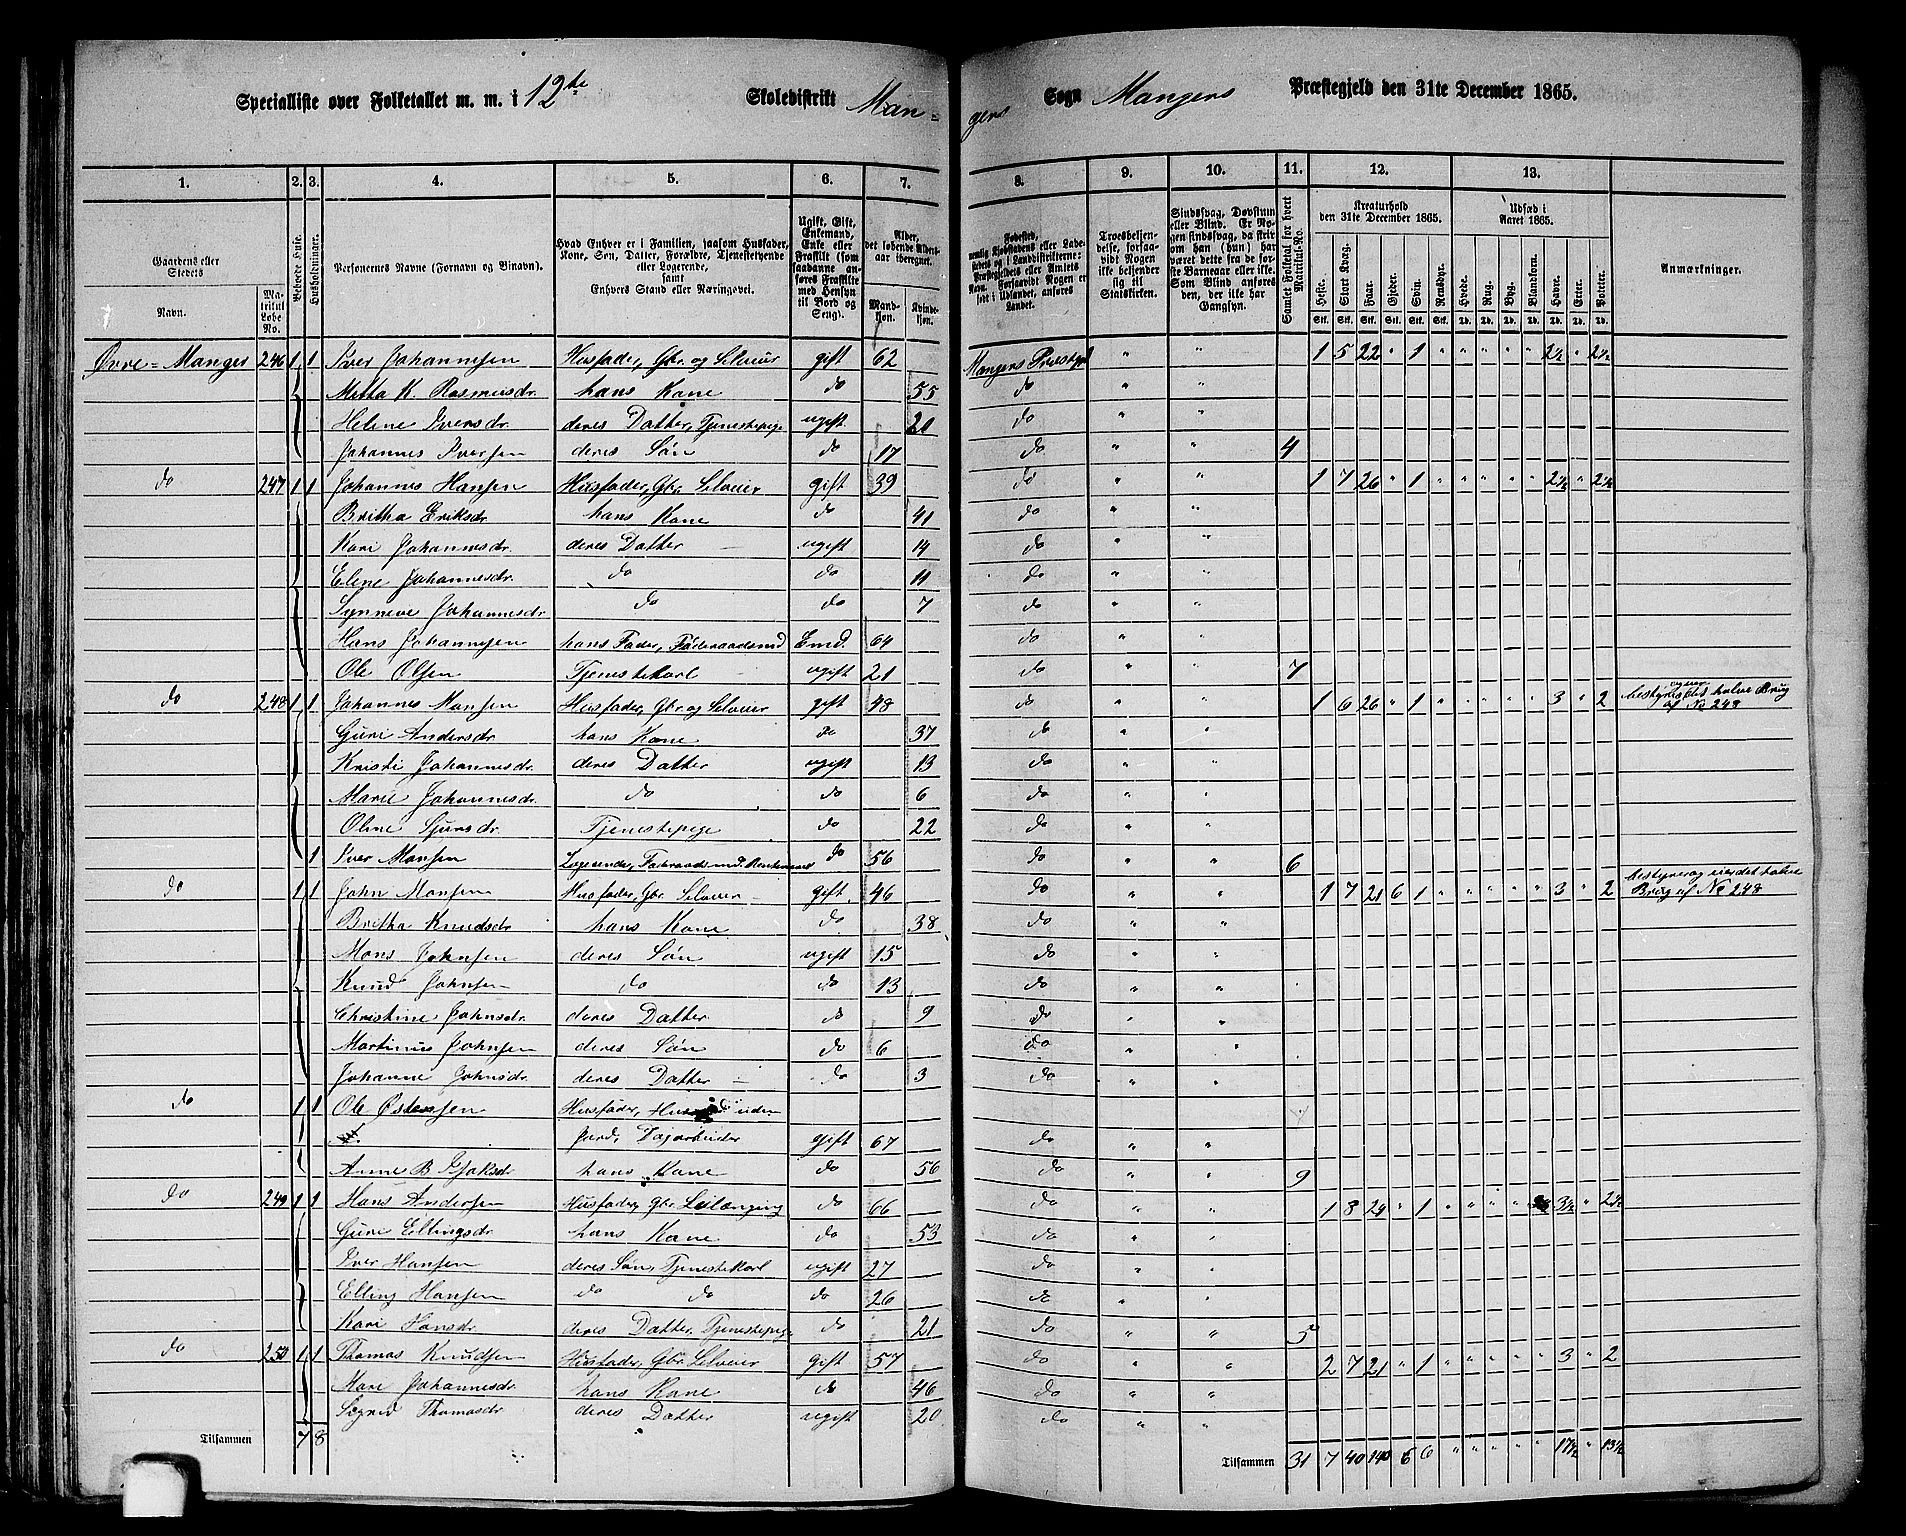 Specialliste over Folketallet m. m. i 12te Skoledistrikt Man-
gers Sogn Mangers Præstegjeld den 31te December 1865.
1. 2. 3. 4. 5. 6. 7. 8. 9. 10. 11. 12. 13.
Gaardens eller Steders
Navn.
Matrikul Løbe No.
Bebøede Huse.
Husholdninger.
Personernes Navne (Fornavn og Binavn).
Hvad Enhver er i Familien, saasom Husfader, Kone, Søn, Datter, Forældre, Tjenestetyende eller Logerende, samt
Enhvers Stand eller Næringsvei.
Ugift, Gift, Enkemand, Enke eller Fraskilt (som saadanne anføres Fraskilte med Hensyn til Bord og Seng).
Alder, det løbende Alders-aar iberegnet.
Mandkjøn. Kvindekjøn.
Troesbekjendelse, forsaavidt Nogen ikke bekjender sig til Statskirken.
Sindssvag, Døvstum eller Blind. Er Nogen sindssvag, da skriv om han (hun) har været det fra de første Barneaar eller ikke. Som Blind anføres den, der ikke har Gangsyn.
Samlet Folketal for hvert Matrikul-No.
Kreaturhold den 31te December 1865.
Udsæd i Aaret 1865.
Heste. Stort Kvæg. Faar. Gjeder. Svin. Rensdyr. Hvede. Rug. Byg. Blandkorn. Havre. Erter. Poteter.
Stk. Stk. Stk. Stk. Stk. Stk. Td. Td. Td. Td. Td. Td. Td.
Anmærkninger.
Øvre=Manger 246 1 1 Iver Johannesen Husfader, Gbr. og Selveier gift 62 Mangers Præstegj. " " 1 5 22 " 1 " " " " " 2½ " 2½
Metta K. Rasmusdr. hans Kone do 55 do " "
Helene Iversdr. deres Datter, Tjenestepige ugift 21 do " "
Johannes Iversen deres Søn do 17 do " " 4
do 247 1 1 Johannes Hansen Husfader, Gbr. Selveier gift 39 do " " 1 7 26 " 1 " " " " " 2½ " 2½
Britha Eriksdr. hans Kone do 41 do " "
Kari Johannesdr. deres Datter ugift 14 do " "
Elene Johannesdr. do do 11 do " "
Synneve Johannesdr. do do 7 do " "
Hans Johannesen hans Fader, Føderaadsmd Emd. 64 do " "
Ole Olsen Tjenestekarl ugift 21 do " " 7
do 248 1 1 Johannes Monsen Husfader, Gbr. og Selveier gift 48 do " " 1 6 26 " 1 " " " " " 3 " 2 bestyrer og eier det halve Brug af No 248
Guri Andersdr. hans Kone do 37 do " "
Kristi Johannesdr. deres Datter ugift 13 do " "
Marie Johannesdr. do do 6 do " "
Oline Sjursdr. Tjenestepige do 22 do " "
1 Iver Monsen Logerende, Føderaadsmd. do 56 do " " 6
do 1 1 John Monsen Husfader, Gbr. Selveier gift 46 do " " 1 7 21 6 1 " " " " " 3 " 2 bestyrer og eier det halve Brug af No 248
Britha Knudsdr. hans Kone do 38 do " "
Mons Johnsen deres Søn ugift 15 do " "
Knud Johnsen do do 13 do " "
Christine Johnsdr. deres Datter do 9 do " "
Martinus Johnsen deres Søn do 6 do " "
Johanne Johnsdr. deres Datter do 3 do " "
do 1 1 Ole Østensen Husfader, uden
Jord, Dagarbeider gift 67 do " "
Anne B. hans Kone do 56 do " " 9
do 249 1 1 Hans Andersen Husfader, Gbr. Leilænding do 66 do " " 1 8 24 " 1 " " " " 3½ " 2½
Guri Ellingsdr. hans Kone do 53 do " "
Iver Hansen deres Søn, Tjenestekarl ugift 27 do " "
Elling Hansen do do do 26 do " "
Kari Hansdr. deres Datter, Tjenestepige do 21 do " " 5
do 250 1 1 Thomas Knudsen Husfader, Gbr. Selveier gift 57 do " " 2 7 21 " 1 " " " " " 3 " 2
Mari Johannesdr. hans Kone do 46 do " "
Sigrid Thomasdr. deres Datter ugift 20 do " "
Tilsammen 7 8 Tilsammen 31 7 40 140 6 6 " " " " " 17½ " 13½